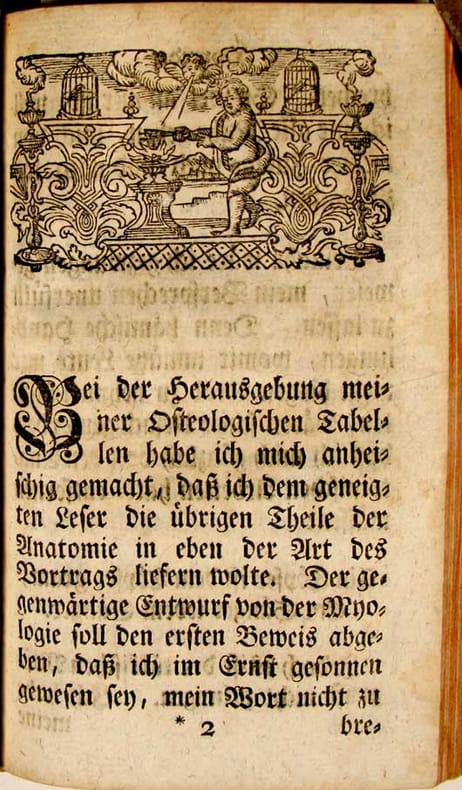 Bei der Herausgebung mei⸗
ner Osteologischen Tabel⸗
len habe ich mich anhei⸗
schig gemacht, daß ich dem geneig⸗
ten Leser die übrigen Theile der
Anatomie in eben der Art des
Vortrags liefern wolte. Der ge⸗
genwärtige Entwurf von der Myo⸗
logie soll den ersten Beweis abge⸗
ben, daß ich im Ernst gesonnen
gewesen sey, mein Wort nicht zu
* 2 bre⸗